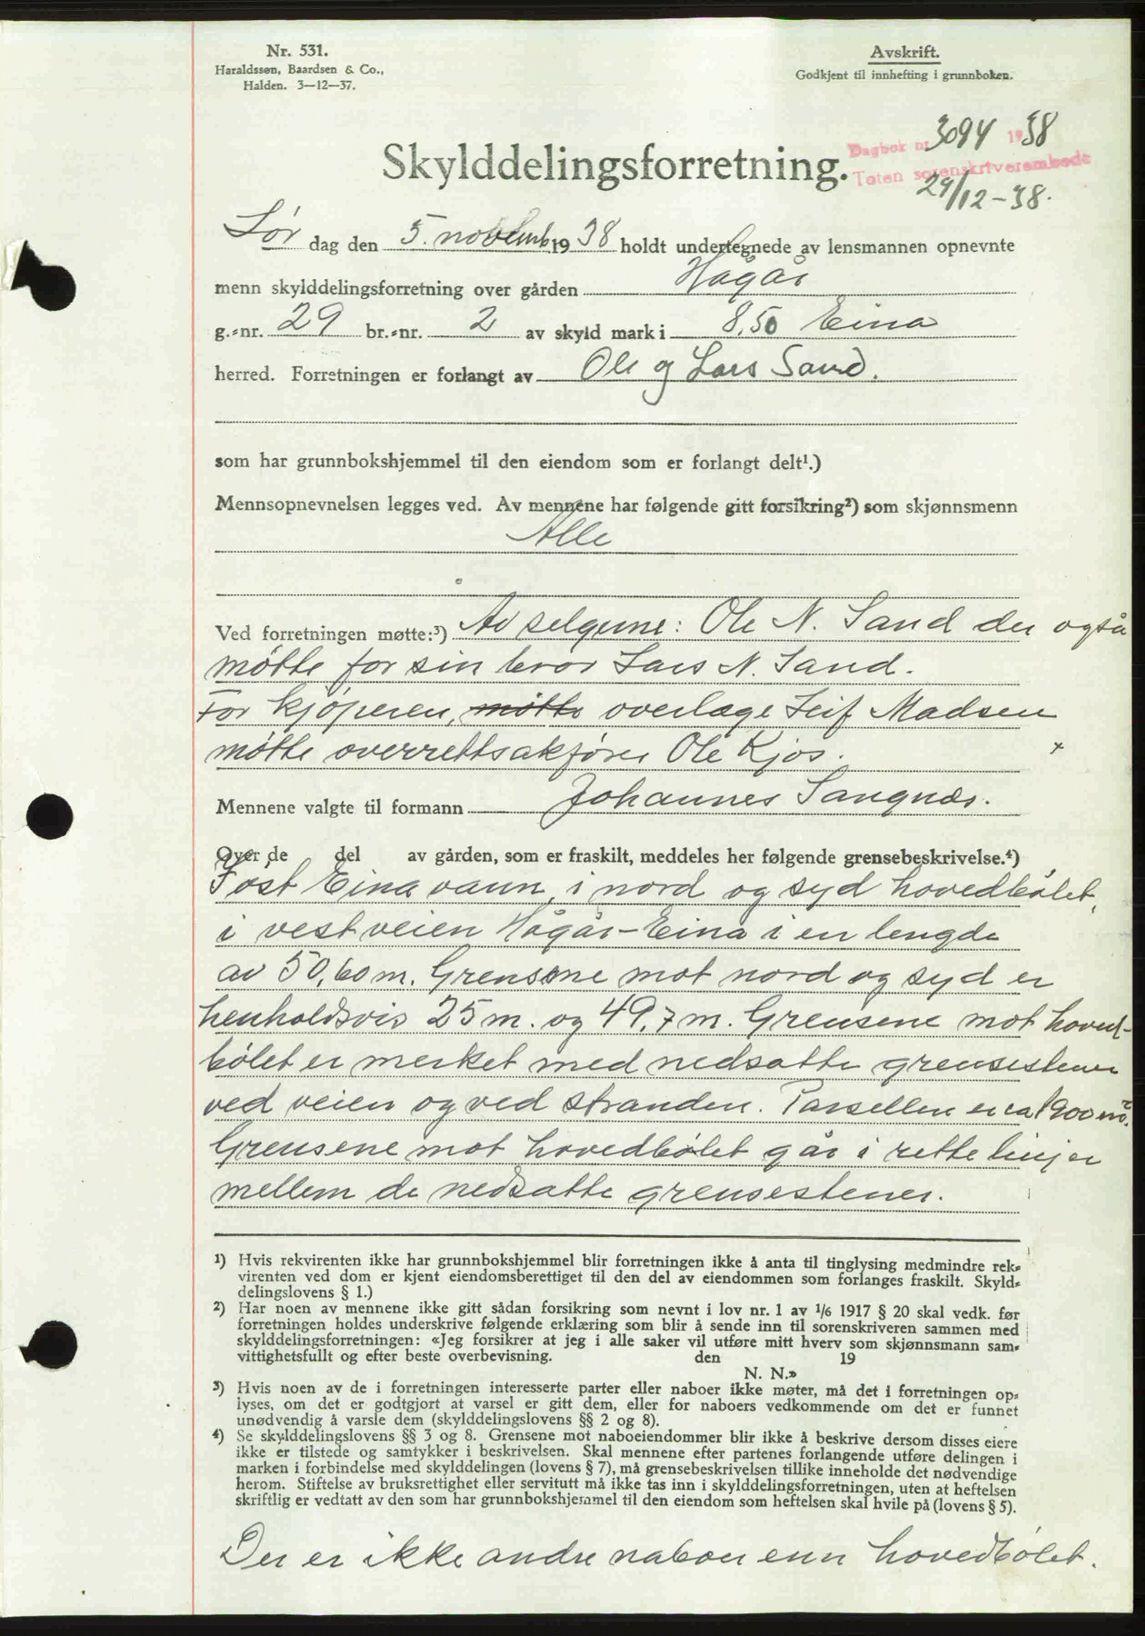 Nr. 531.
Haraldssøn, Baardsen & Co.,
Halden. 3—12—37.
Avskrift.
Godkjent til innhefting i grunnboken.
Dagbok nr. 3094 1938
Toten sorenskriverembede
29/12-38.
Skylddelingsforretning.
Lør dag den 5. november 1938 holdt undertegnede av lensmannen opnevnte
menn skylddelingsforretning over gården Hågår
g.-nr. 29 br.-nr. 2 av skyld mark i 8,50 Eina
herred. Forretningen er forlangt av Ole og Lars Sand.
som har grunnbokshjemmel til den eiendom som er forlangt delt¹.)
Mennsopnevnelsen legges ved. Av mennene har følgende gitt forsikring²) som skjønnsmenn
Alle
Ved forretningen møtte:³) Av selgerne: Ole N. Sand der også
møtte for sin bror Lars N. Sand.
For kjøperen, møtte overlæge Leif Madsen
møtte overrettsakfører Ole Kjos.
Mennene valgte til formann Johannes Sangnæs.
Over de del av gården, som er fraskilt, meddeles her følgende grensebeskrivelse.⁴)
I øst Eina vann, i nord og syd hovedbølet,
i vest veien Hågår-Eina i en lengde
av 50,60 m. Grensene mot nord og syd er
henholdsvis 25 m. og 49,7 m. Grensene mot hoved-
bølet er merket med nedsatte grensestener
ved veien og ved stranden. Parsellen er ca 1900 m².
Grensene mot hovedbølet går i rette linjer
mellem de nedsatte grensestener.
¹) Hvis rekvirenten ikke har grunnbokshjemmel blir forretningen ikke å anta til tinglysing medmindre rek-
virenten ved dom er kjent eiendomsberettiget til den del av eiendommen som forlanges fraskilt. Skyld-
delingslovens § 1.)
²) Har noen av mennene ikke gitt sådan forsikring som nevnt i lov nr. 1 av 1/6 1917 § 20 skal vedk. før
forretningen holdes underskrive følgende erklæring som blir å sende inn til sorenskriveren sammen med
skylddelingsforretningen: «Jeg forsikrer at jeg i alle saker vil utføre mitt hverv som skjønnsmann sam-
vittighetsfullt og efter beste overbevisning. den 19
N. N.»
³) Hvis noen av de i forretningen interesserte parter eller naboer ikke møter, må det i forretningen op-
lyses, om det er godtgjort at varsel er gitt dem, eller for naboers vedkommende om det er funnet
unødvendig å varsle dem (skylddelingslovens §§ 2 og 8).
⁴) Se skylddelingslovens §§ 3 og 8. Grensene mot naboeiendommer blir ikke å beskrive dersom disses eiere
ikke er tilstede og samtykker i beskrivelsen. Skal mennene efter partenes forlangende utføre delingen i
marken i forbindelse med skylddelingen (lovens § 7), må grensebeskrivelsen tillike inneholde det nødvendige
herom. Stiftelse av bruksrettighet eller servitutt må ikke tas inn i skylddelingsforretningen, uten at heftelsen
skriftlig er vedtatt av den som har grunnbokshjemmel til den eiendom som heftelsen skal hvile på (lovens § 5).
Der er ikke andre naboer enn hovedbølet.